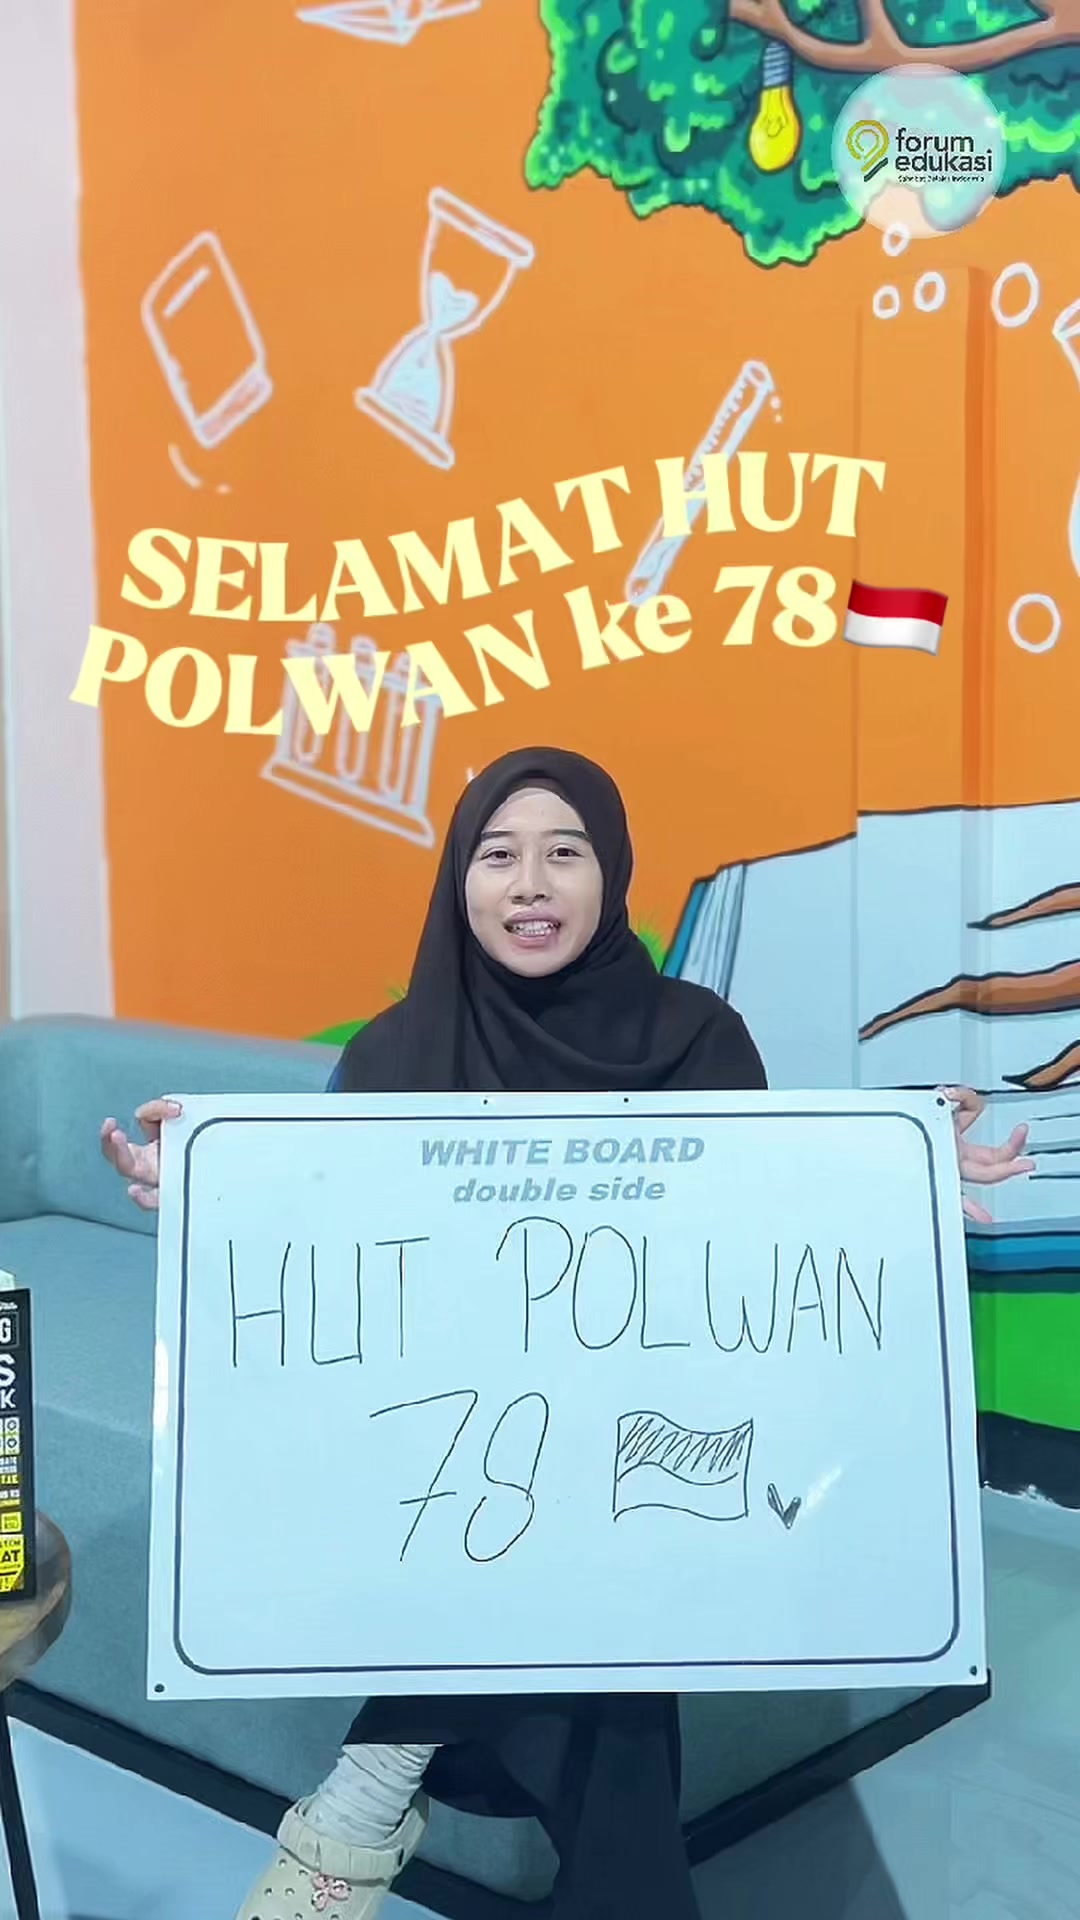 forum
edukasi
SELAMAT HUT
POLWAN ke 78
WHITE BOARD
double side
HUT POLWAN
78
G
S
K
AT